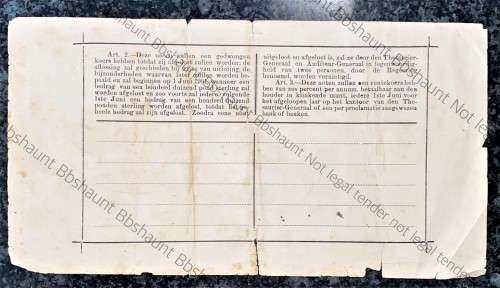 Art. 2.—Deze noten zullen een gedwongen
koers hebben totdat zij afgelost zullen worden; de
aflossing zal geschieden bij wijze van uitloting, de
bijzonderheden waarvan later zullen worden be-
paald en zal beginnen op 1 Juni wanneer een
bedrag van een honderd duizend pond sterling zal
worden afgelost en zoo voorts zal iedere volgende
1ste Juni een bedrag van een honderd duizend
ponden sterling worden afgelost, totdat het ge-
heele bedrag zal zijn afgelost. Zoodra eene noot
uitgeloot en afgelost is, zal ze door den Thesaurier-
Generaal en Auditeur-Generaal in tegenwoordig-
heid van twee personen, door de Regeering
benoemd, worden vernietigd.
Art. 3.—Deze noten zullen een rentekoers heb-
ben van zes percent per annum, betaalbaar aan den
houder in klinkende munt, iedere 1ste Juni voor
het afgeloopen jaar op het kantoor van den The-
saurier-Generaal of een per proclamatie aangewezen
bank of banken.
Bbshaunt Bbshaunt Bbshaunt Bbshaunt Not legal tender not legal tender not